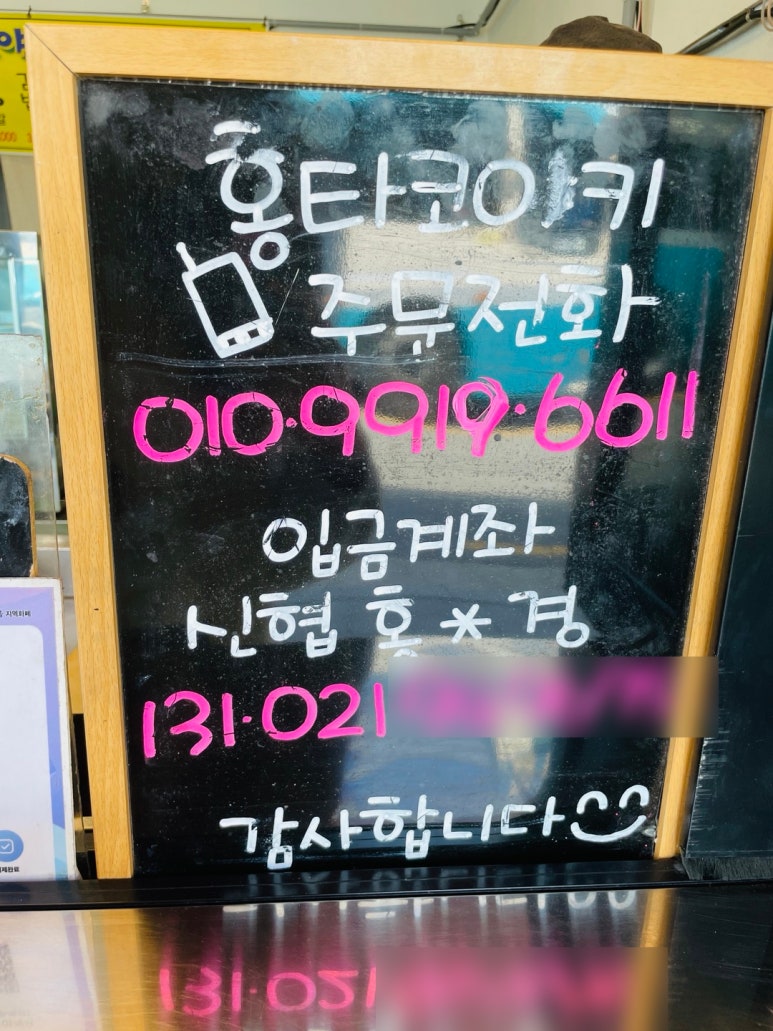 홍타코야키
주문전화
010·9919·6611
입금계좌
신협 홍*경
131·021
감사합니다
지역화폐